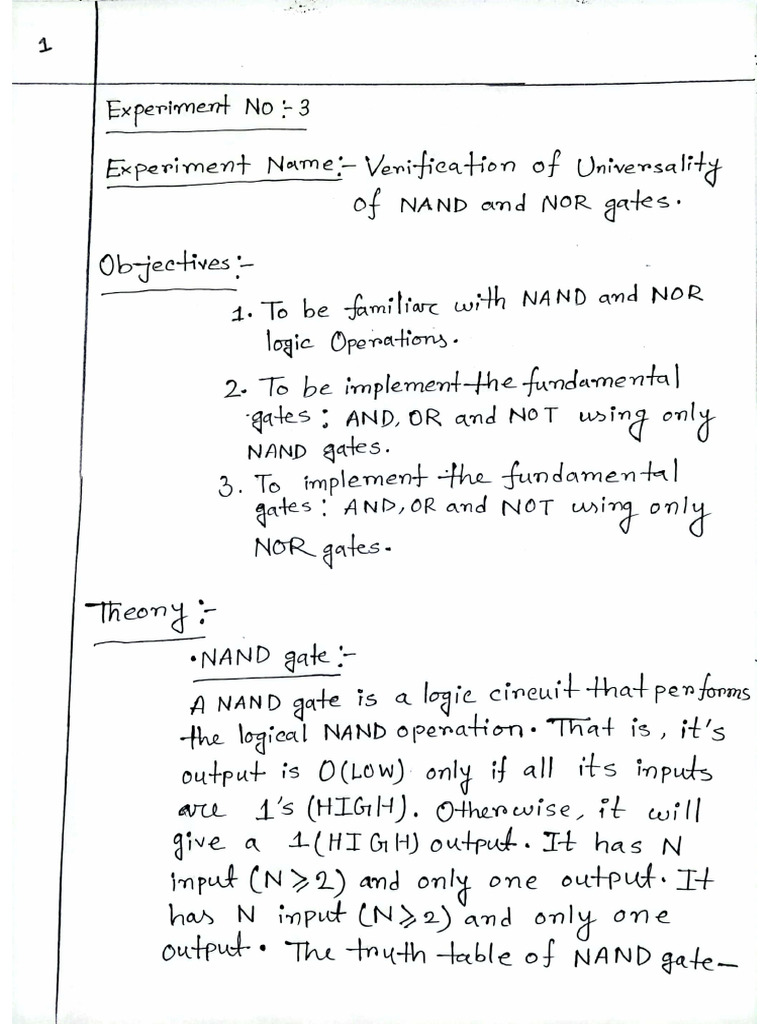 1
Experiment No :- 3
Experiment Name:- Verification of Universality
of NAND and NOR gates.
Objectives:-
1. To be familiar with NAND and NOR
logic Operations.
2. To be implement the fundamental
gates : AND, OR and NOT using only
NAND gates.
3. To implement the fundamental
gates : AND, OR and NOT using only
NOR gates.
Theory :-
• NAND gate :-
A NAND gate is a logic circuit that performs
the logical NAND operation. That is, it's
output is 0(LOW) only if all its inputs
are 1's (HIGH). Otherwise, it will
give a 1(HIGH) output. It has N
input (N⩾2) and only one output. It
has N input (N⩾2) and only one
output. The truth table of NAND gate—